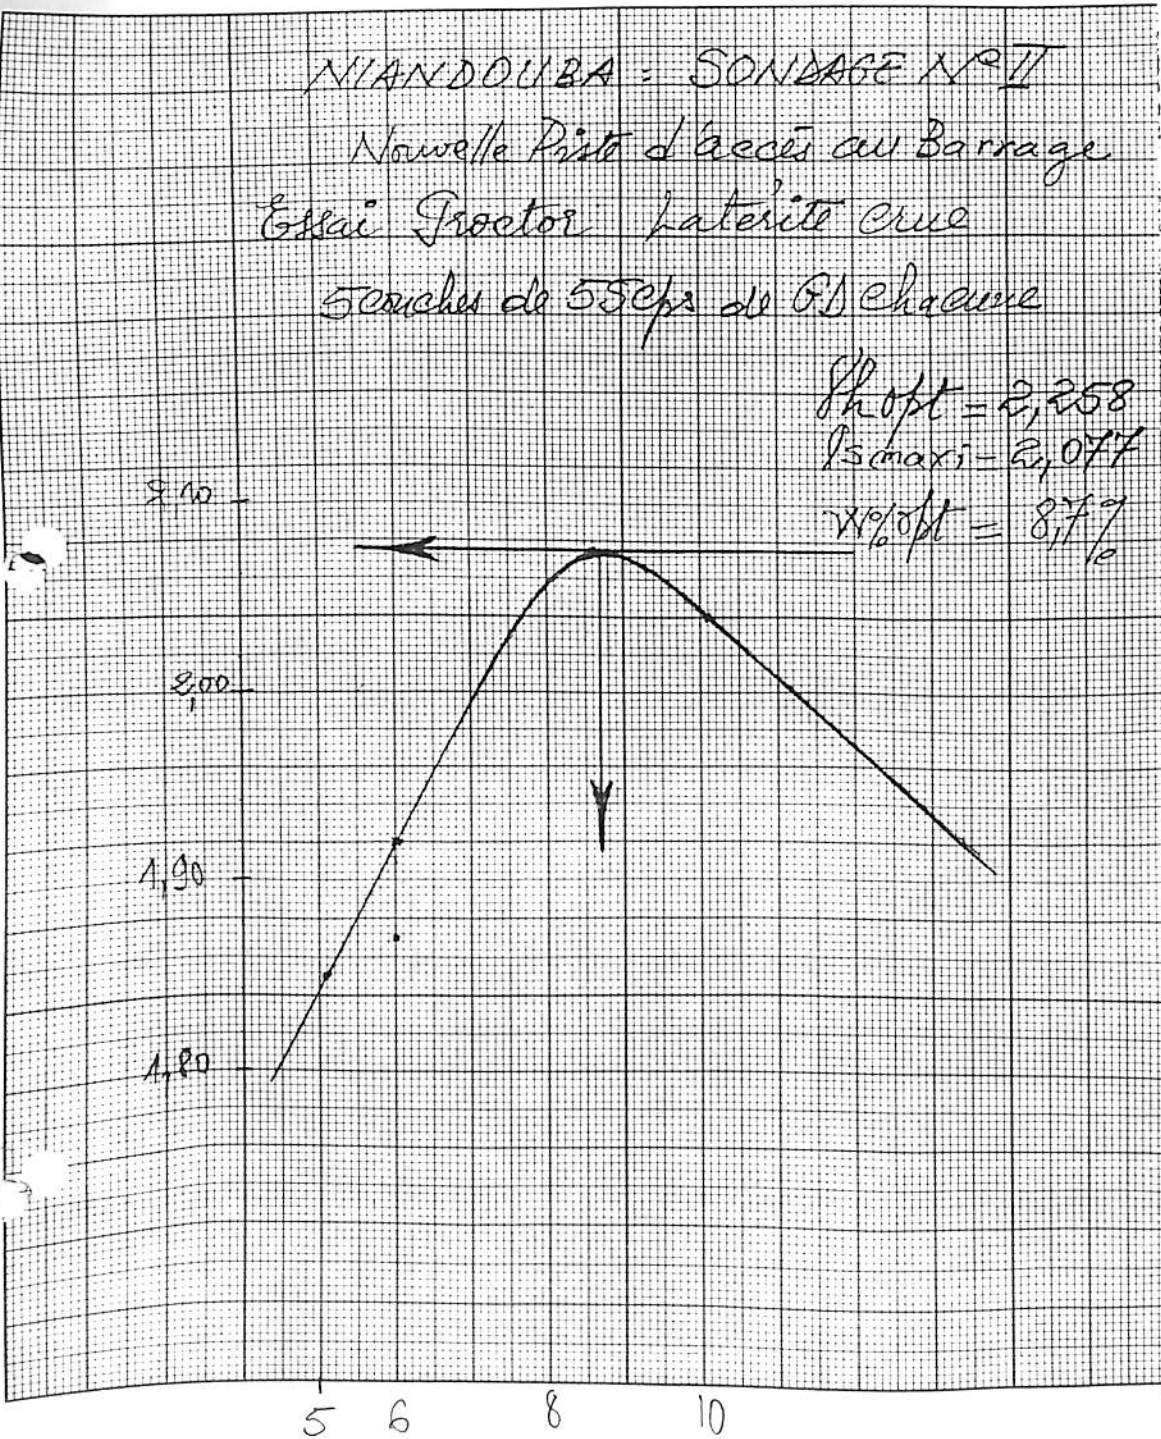 NIANDOUBA : SONDAGE N° II
Nouvelle Piste d'accès au Barrage
Essai Proctor Latérite Crue
5 couches de 55 Cps de GD Chacune
γh opt = 2,258
γs maxi = 2,077
W% opt = 8,7%
2,10
2,00
1,90
1,80
5 6 8 10